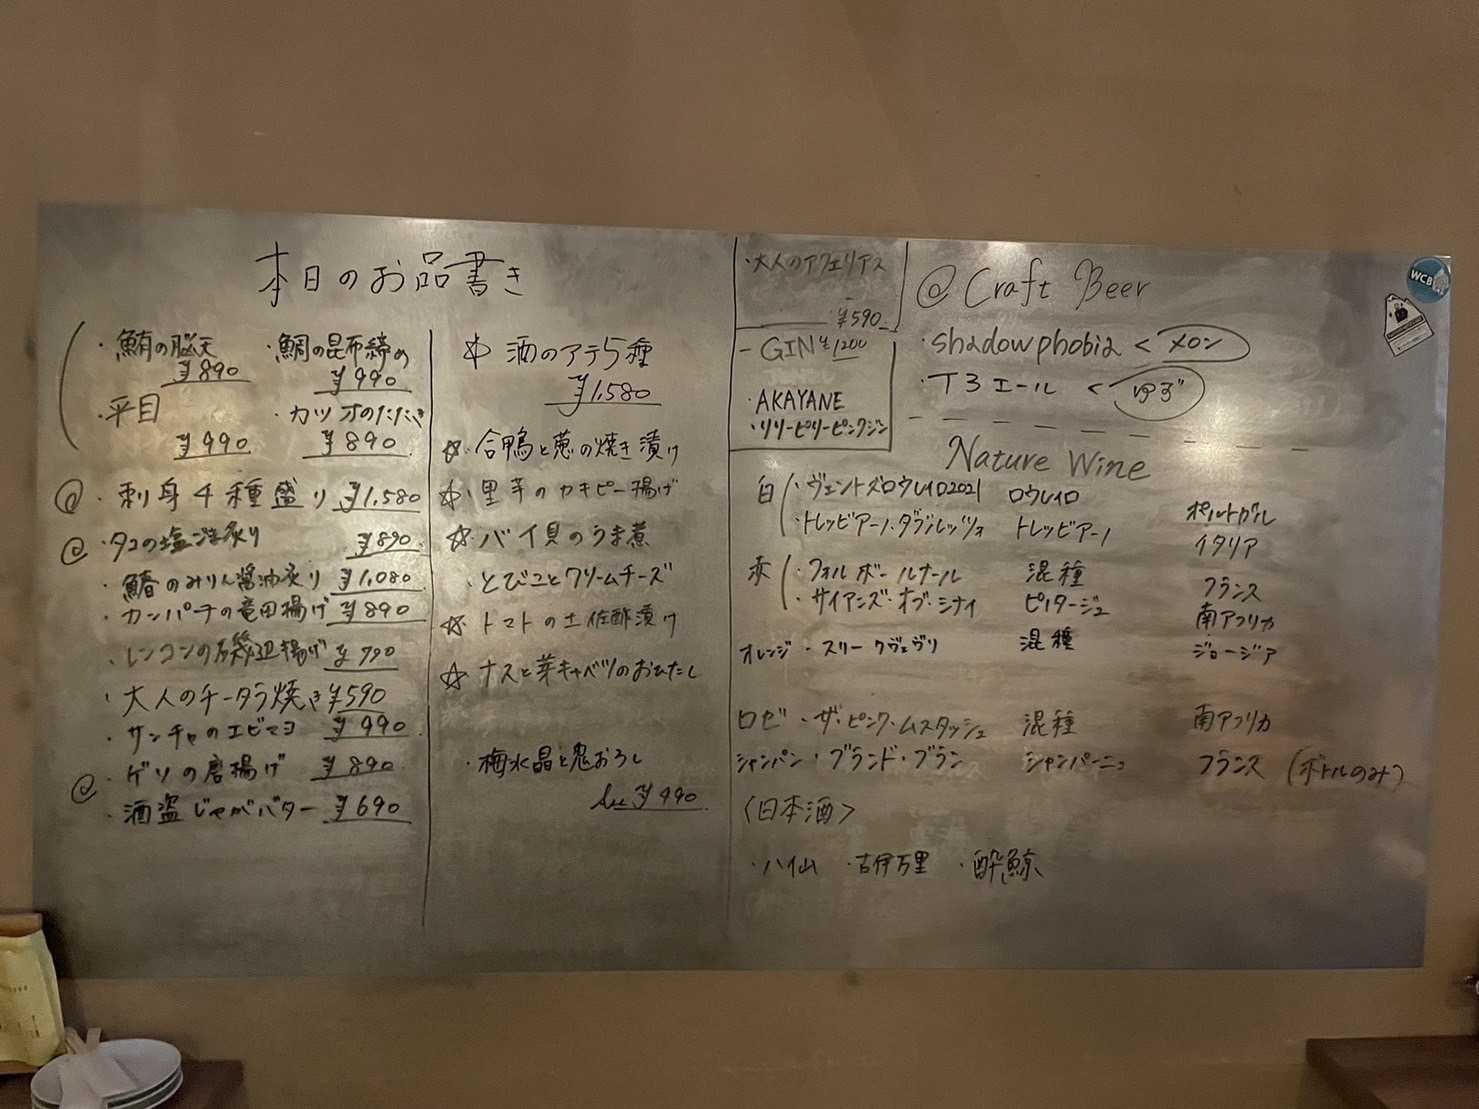 本日のお品書き
・鮪の脳天 ¥890
・鯛の昆布締め ¥990
・平目 ¥990
・カツオのたたき ¥890
@・刺身4種盛り ¥1,580
@・タコの塩 炙り ¥890
・鰆のみりん醤油炙り ¥1,080
・カンパチの竜田揚げ ¥890
・レンコンの磯辺揚げ ¥790
・大人のチータラ焼き ¥590
・サンチャのエビマヨ ¥990
@・ゲソの唐揚げ ¥890
・酒盗じゃがバター ¥690
☆酒のアテ5種
¥1,580
☆・合鴨と葱の焼き漬け
☆・里芋のカキピー揚げ
☆・バイ貝のうま煮
・とびことクリームチーズ
☆・トマトの土佐酢漬け
☆・ナスと芽キャベツのおひたし
・梅水晶と鬼おろし
¥990
・大人のアクエリアス
¥590
- GIN ¥1200
・AKAYANE
・リリーピリーピンクジン
@ Craft Beer
・shadowphobia < メロン
・T3エール < ゆず
Nature Wine
白 ・ヴェントズロウレイロ2021 ロウレイロ ポルトガル
・トレッビアーノ・ダブルッツォ トレッビアーノ イタリア
赤 ・フォルボールナール 混種 フランス
・サイアンズ・オブ・シナイ ピノタージュ 南アフリカ
オレンジ・スリークヴェヴリ 混種 ジョージア
ロゼ・ザ・ピンク・ムスタッシュ 混種 南アフリカ
シャンパン・ブランド・ブラン シャンパーニュ フランス (ボトルのみ)
〈日本酒〉
・八仙 ・古伊万里 ・酔鯨
WCB